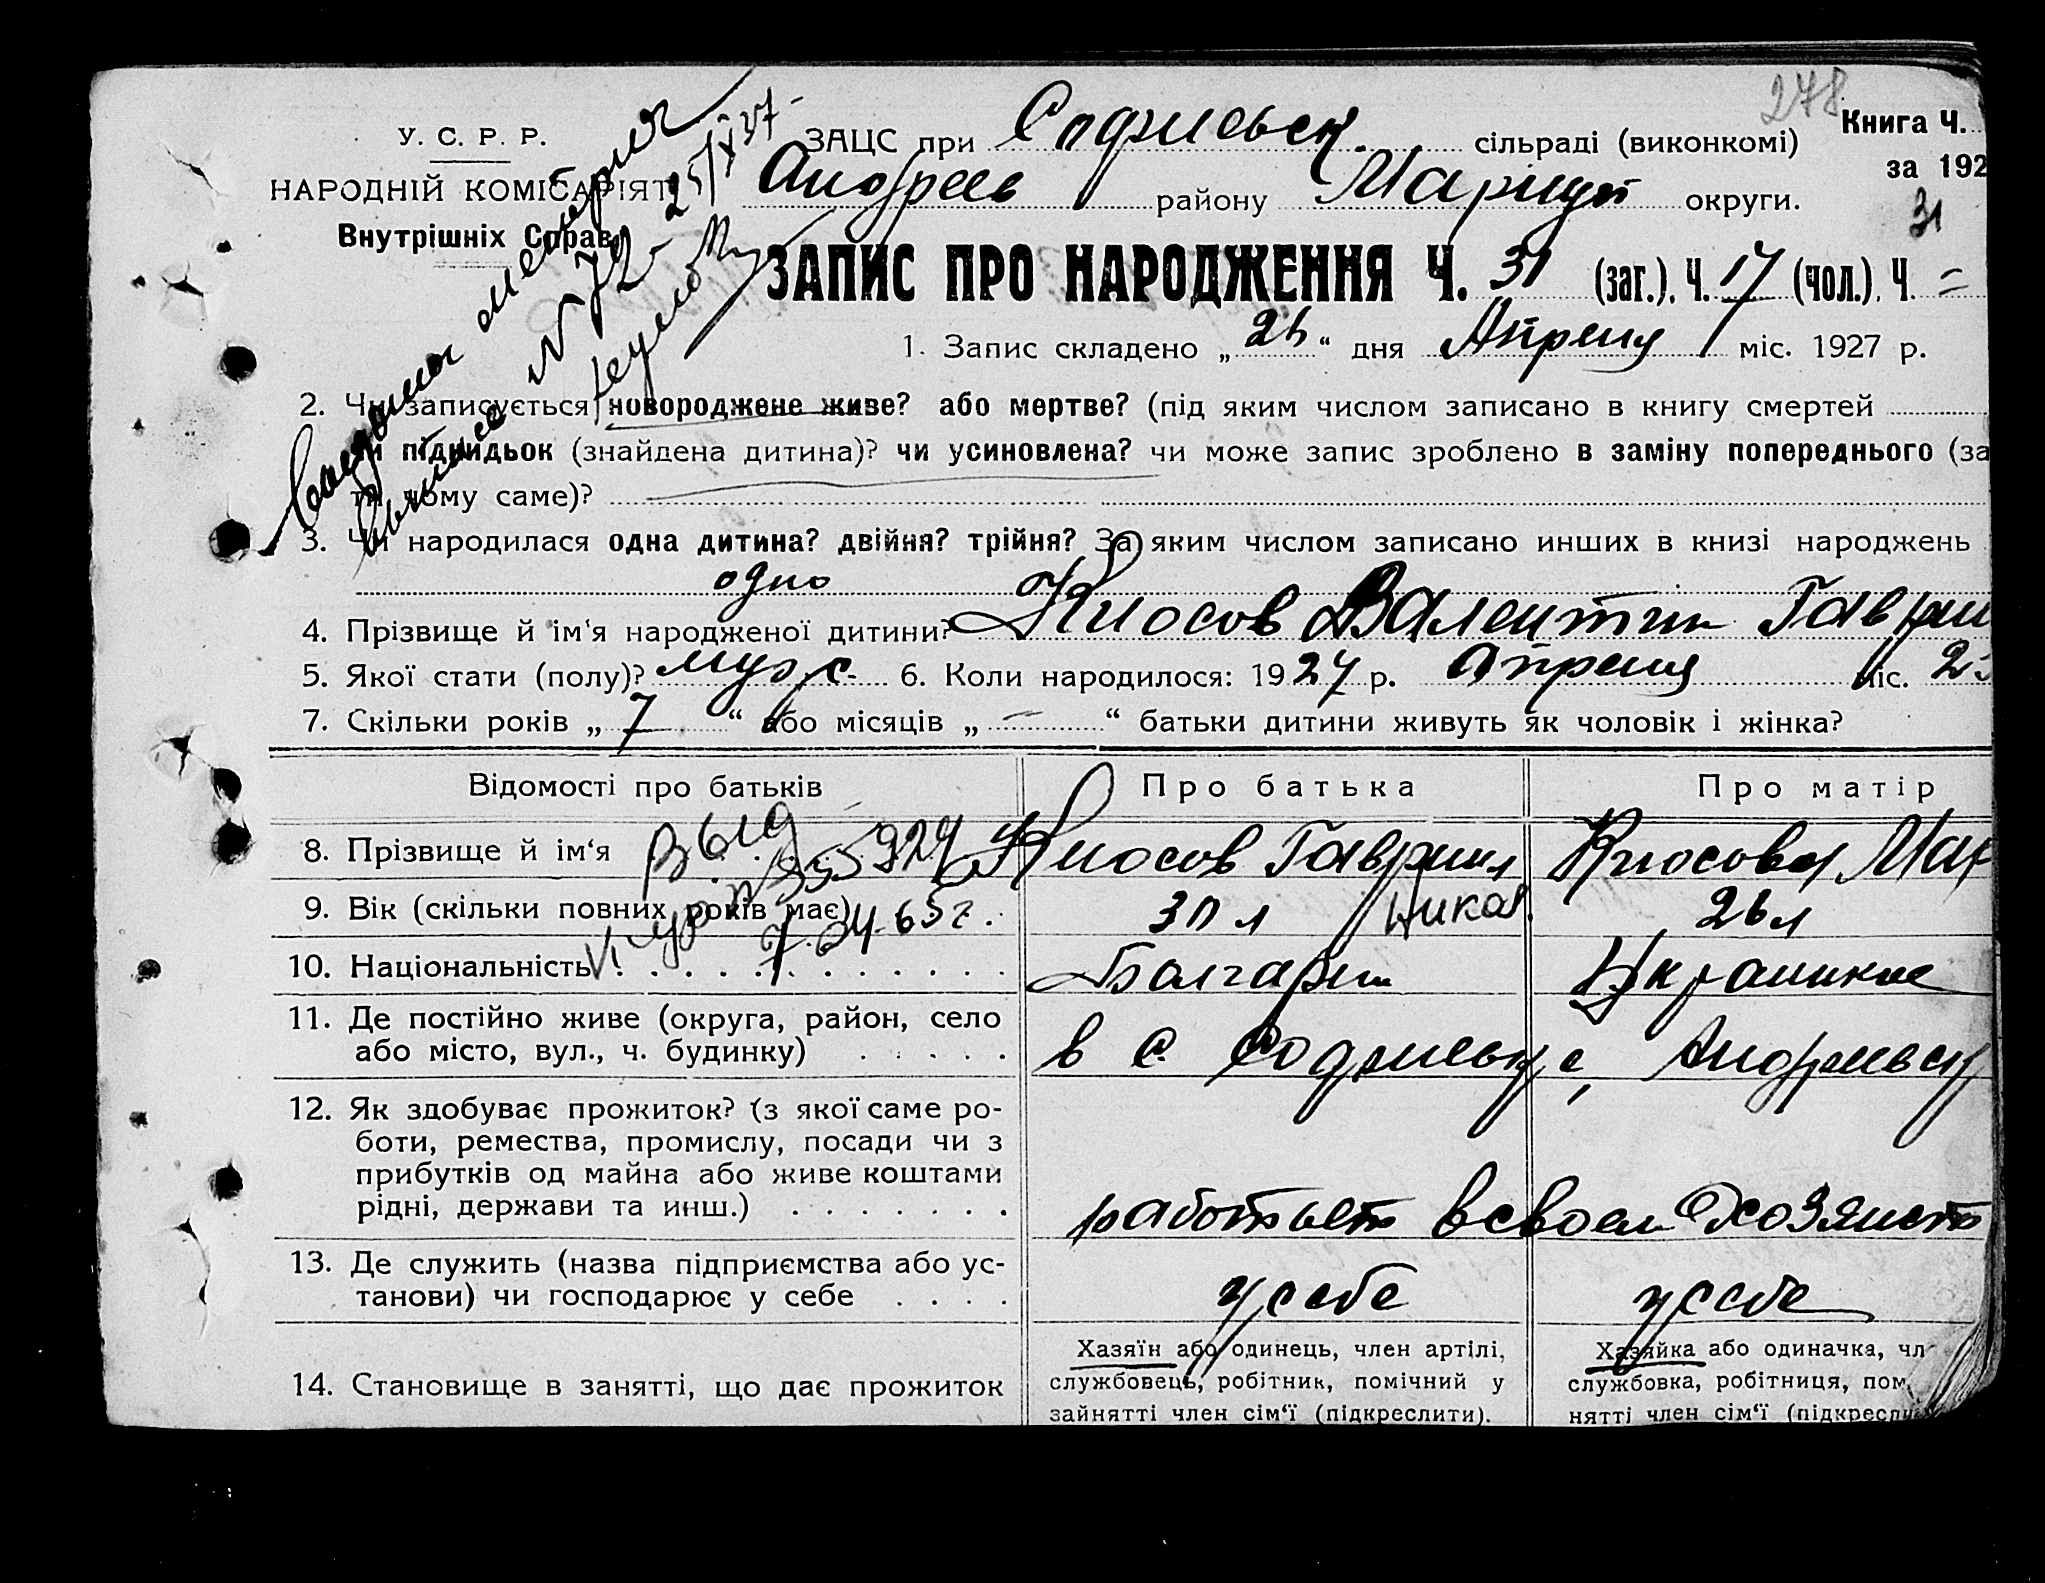 278
У. С. Р. Р.
ЗАЦС при сільраді (виконкомі)
Книга Ч.
за 192
НАРОДНІЙ КОМІСАРІЯТ
Андреев району Мариуп округи.
31
Внутрішніх Справ
ЗАПИС ПРО НАРОДЖЕННЯ Ч. 31 (заг.). Ч. 17 (чол.). Ч. =
1. Запис складено „26“ дня Апреля міс. 1927 р.
2. Чи записується новороджене живе? або мертве? (під яким числом записано в книгу смертей
чи підкидьок (знайдена дитина)? чи усиновлена? чи може запис зроблено в заміну попереднього (за
чому саме)?
3. Чи народилася одна дитина? двійня? трійня? За яким числом записано инших в книзі народжень
одно
4. Прізвище й ім'я народженої дитини? Кюсов Валентин Гаври
5. Якої стати (полу)? муж. 6. Коли народилося: 1927 р. апреля міс. 25
7. Скільки років „ 7 “ або місяців „ — “ батьки дитини живуть як чоловік і жінка?
Відомості про батьків Про батька Про матір
8. Прізвище й ім'я Кюсов Гавриил Кюсова Мар
Никол.
9. Вік (скільки повних років має) 30 л 26 л
10. Національність Болгарин Украинка
11. Де постійно живе (округа, район, село
або місто, вул., ч. будинку)
в с.
12. Як здобуває прожиток? (з якої саме ро-
боти, ремества, промислу, посади чи з
прибутків од майна або живе коштами
рідні, держави та инш.)
работает в своем хозяйст
13. Де служить (назва підприємства або ус-
танови) чи господарює у себе у себе у себе
14. Становище в занятті, що дає прожиток
Хазяїн або одинець, член артілі,
службовець, робітник, помічний у
зайнятті член сім'ї (підкреслити).
Хазяйка або одиначка, чл
службовка, робітниця, пом
нятті член сім'ї (підкресли
Выд
7.04.65 г.